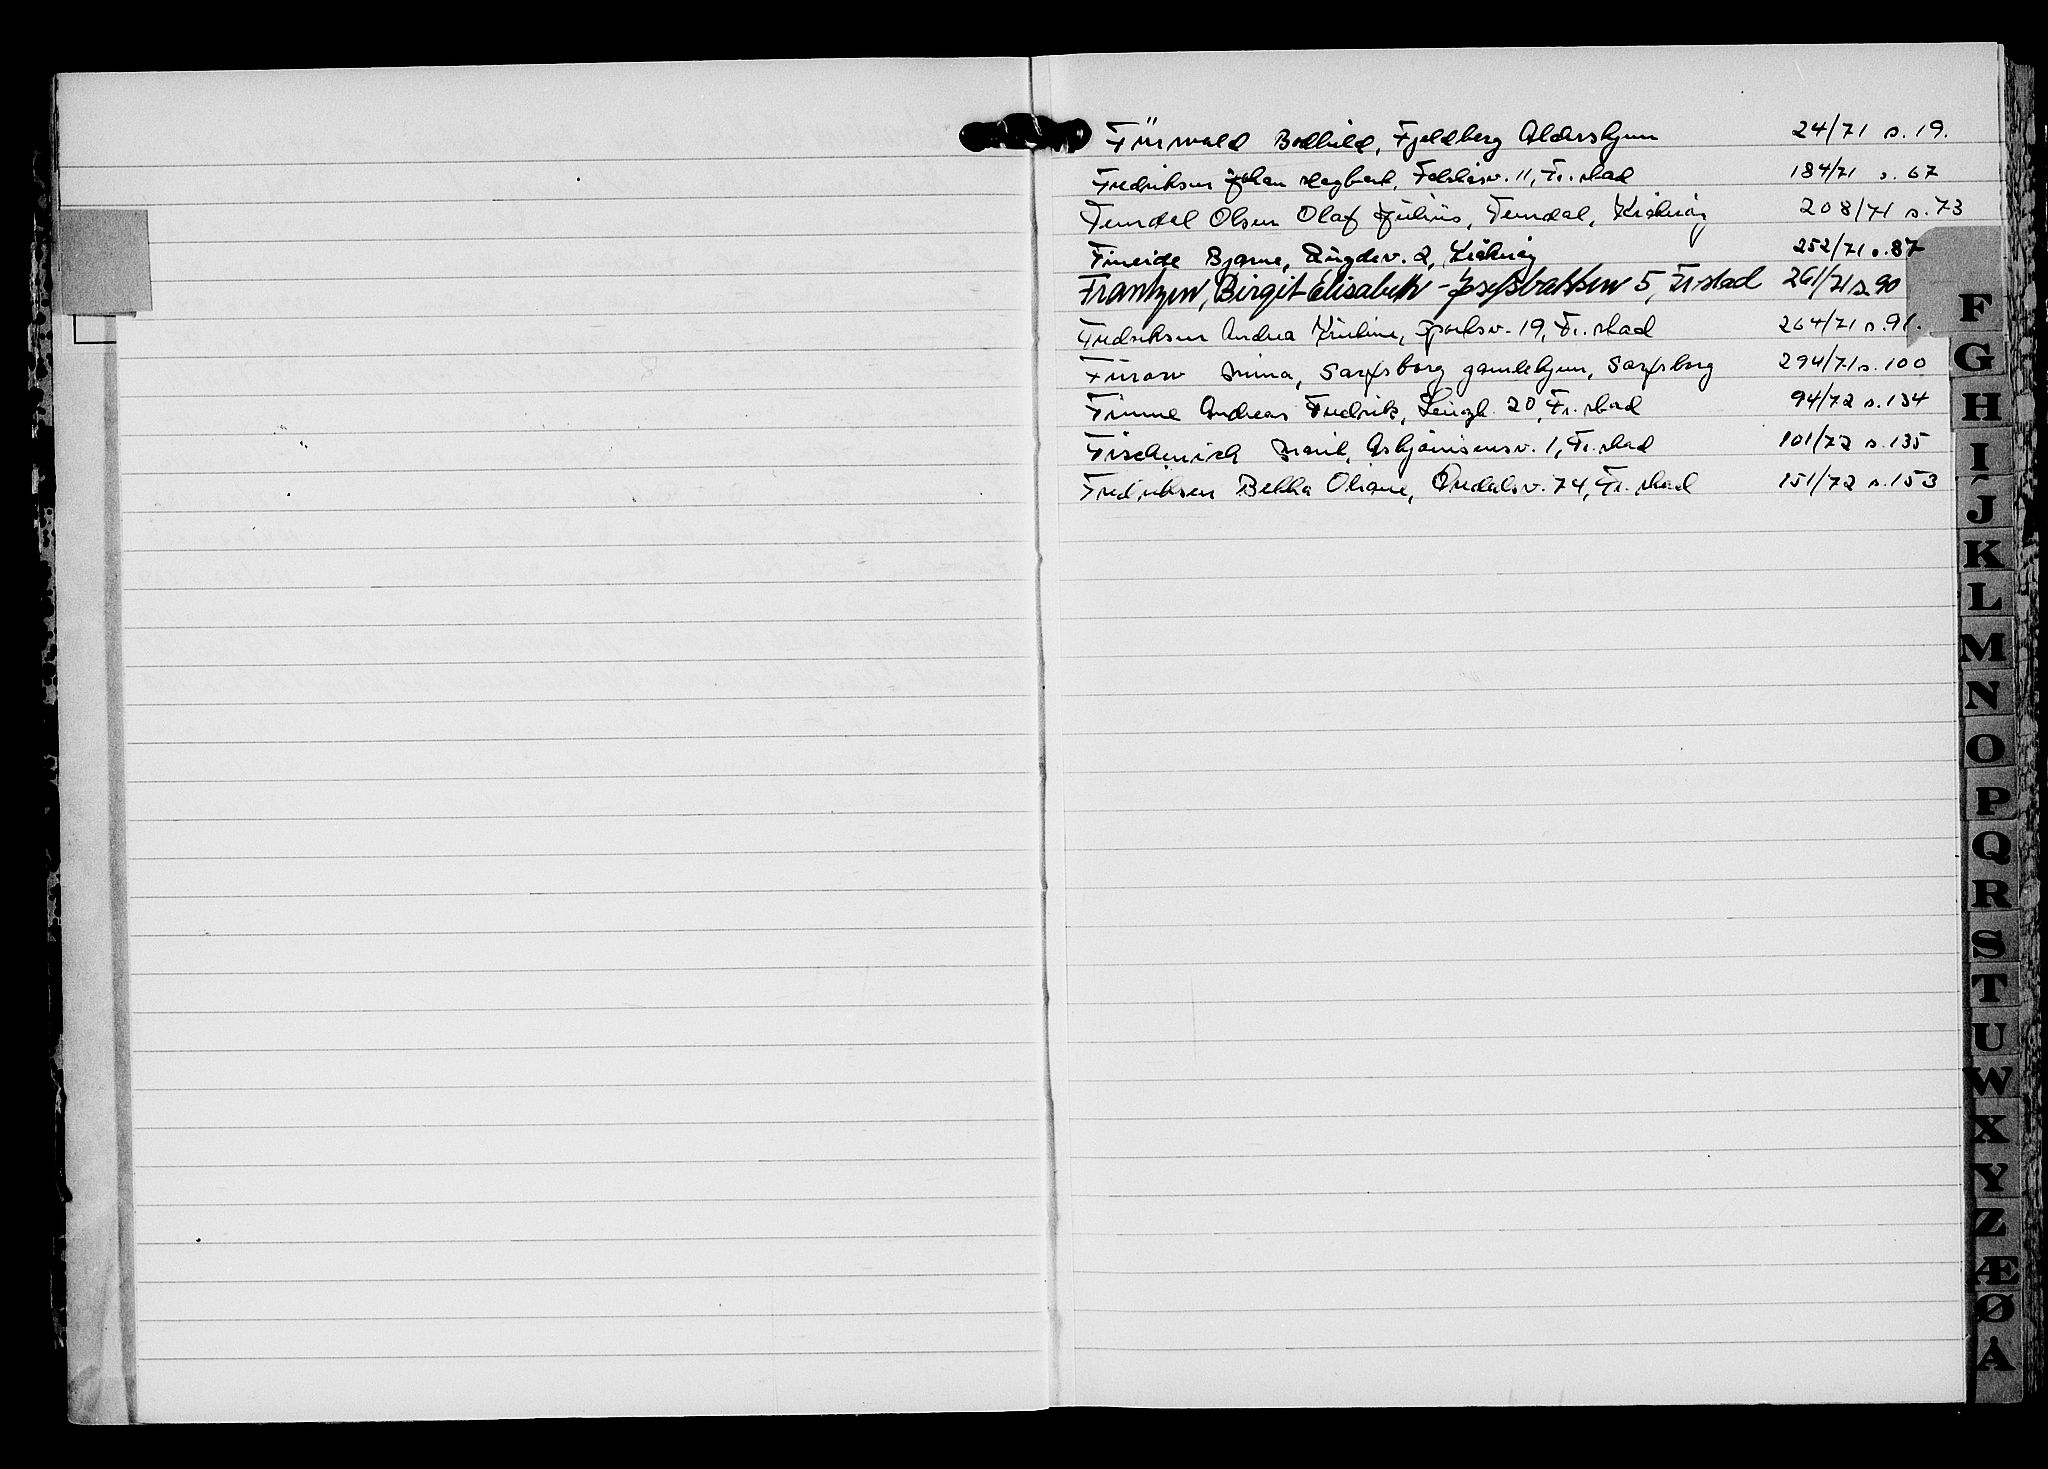 Furwald Bodhild, Fjeldberg Aldershjem 24/71 s. 19.
Fredriksen Johan Dagbert, 11, Fr.stad 184/71 s. 67
Femdal Olsen Olaf Julius, Femdal, Kråkerøy 208/71 s. 73
Fineide Bjarne, Bugdev. 2, Kråkerøy 252/71 s. 87
Frantzen, Birgit Elisabeth - Josefsbakken 5, Fr.stad 261/71 s. 90
Fredriksen Andrea Kristine, 19, Fr.stad 264/71 s. 91.
Anna, Sarpsborg gamlehjem, Sarpsborg 294/71 s. 100
Finne Andreas Fredrik, 20, Fr.stad 94/72 s. 134
Marie, Asbjørnsensv. 1, Fr.stad 101/72 s. 135
Fredriksen Bekka Oliane, 74, Fr.stad 151/72 s. 153
F
G
H
I
J
K
L
M
N
O
P
Q
R
S
T
U
W
X
Y
Z
Æ
Ø
Å